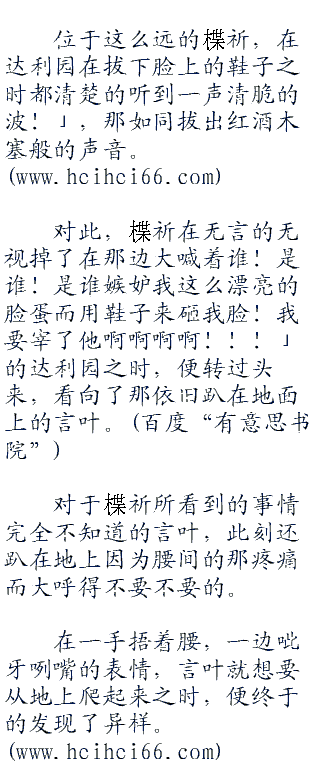 位于这么远的楪祈，在
达利园在拔下脸上的鞋子之
时都清楚的听到一声清脆的
波！」，那如同拔出红酒木
塞般的声音。
(www.hcihci66.com)
对此，楪祈在无言的无
视掉了在那边大喊着谁！是
谁！是谁嫉妒我这么漂亮的
脸蛋而用鞋子来砸我脸！我
要宰了他啊啊啊啊！！！」
的达利园之时，便转过头
来，看向了那依旧趴在地面
上的言叶。(百度“有意思书
院”)
对于楪祈所看到的事情
完全不知道的言叶，此刻还
趴在地上因为腰间的那疼痛
而大呼得不要不要的。
在一手捂着腰，一边呲
牙咧嘴的表情，言叶就想要
从地上爬起来之时，便终于
的发现了异样。
(www.hcihci66.com)